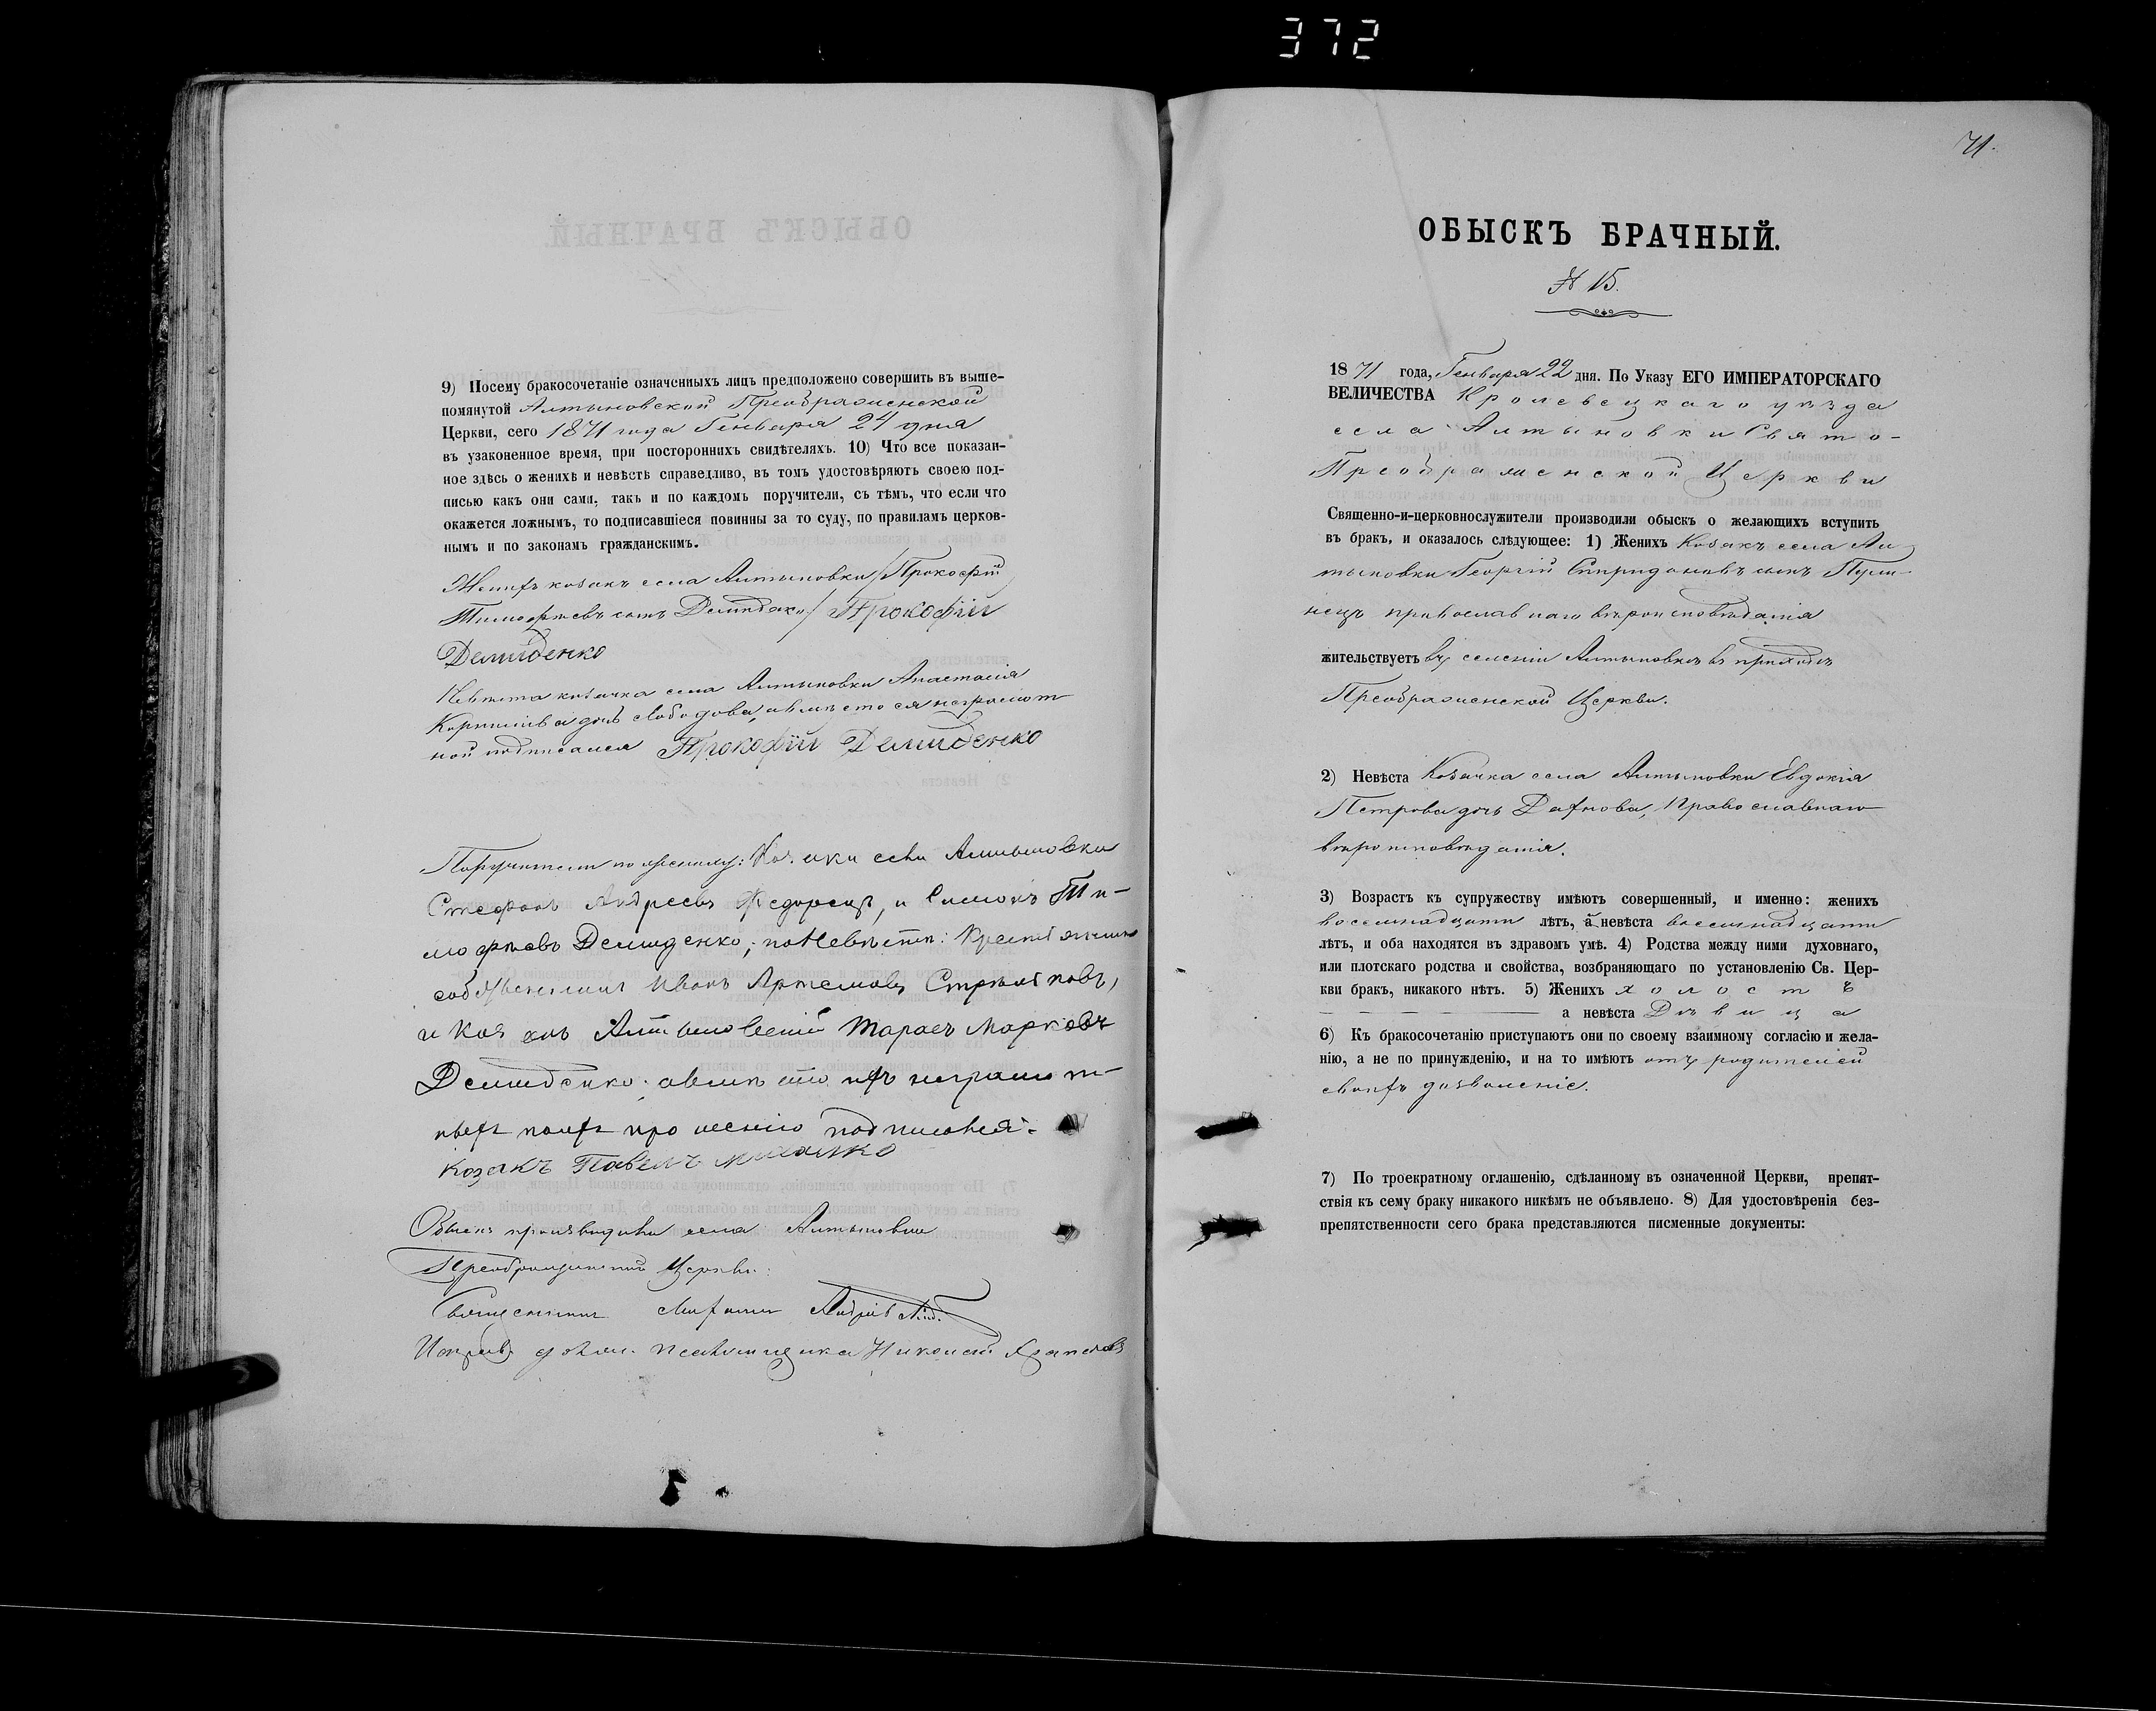 372
9) Посему бракосочетаніе означенныхъ лицъ предположено совершить въ выше-
помянутой Алтыновской Преображенской
Церкви, сего 1871 года Генваря 24 дня
въ узаконенное время, при постороннихъ свидѣтеляхъ. 10) Что все показан-
ное здѣсь о женихѣ и невѣстѣ справедливо, въ томъ удостовѣряютъ своею под-
писью какъ они сами, такъ и по каждомъ поручители, съ тѣмъ, что если что
окажется ложнымъ, то подписавшіеся повинны за то суду, по правиламъ церков-
нымъ и по законамъ гражданскимъ.
Женихъ козакъ села Алтыновки /Прокофій
Тимофѣевъ сынъ Демиденко/ Прокофій
Демиденко
Невѣста козачка села Алтыновки Анастасія
дочь свободова, а вмѣсто ея неграмот
ной подписался Прокофій Демиденко
Поручители по женихѣ: Козаки села Алтыновки
Стефанъ Андреевъ Федорецъ, и Симонъ Ти-
мофѣевъ Демиденко; по Невѣстѣ: Крестьянинъ
собственникъ Иванъ Артемовъ Стрѣльниковъ,
и Козакъ Алтыновскій Тарасъ Марковъ
Демиденко, а вмѣсто ихъ неграмот-
ныхъ поихъ прошенію подписался
козакъ Павелъ Михалко
Обыскъ производили села Алтыновки
Преображенской Церкви:
Священникъ
псаломщика Николай
71.
ОБЫСКЪ БРАЧНЫЙ.
№ 15.
1871 года, Генваря 22 дня. По Указу ЕГО ИМПЕРАТОРСКАГО
ВЕЛИЧЕСТВА Кролевецкаго уѣзда
села Алтыновки Свято-
Преображенской Церкви
Священно-и-церковнослужители производили обыскъ о желающихъ вступить
въ бракъ, и оказалось слѣдующее: 1) Женихъ Козакъ села Ал
тыновки Георгій Спиридоновъ сынъ
православнаго вѣроисповѣданія
жительствуетъ въ селеніи Алтыновкѣ въ приходѣ
Преображенской Церкви.
2) Невѣста Козачка села Алтыновки Евдокія
Петрова дочь Дахнова, Православнаго
вѣроисповѣданія.
3) Возрастъ къ супружеству имѣютъ совершенный, и именно: женихъ
восемнадцати лѣтъ, а невѣста восемнадцати
лѣтъ, и оба находятся въ здравомъ умѣ. 4) Родства между ними духовнаго,
или плотскаго родства и свойства, возбраняющаго по установленію Св. Цер-
кви бракъ, никакого нѣтъ. 5) Женихъ холостъ
а невѣста Дѣвица
6) Къ бракосочетанію приступаютъ они по своему взаимному согласію и жела-
нію, а не по принужденію, и на то имѣютъ отъ родителей
своихъ дозволеніе.
7) По троекратному оглашенію, сдѣланному въ означенной Церкви, препят-
ствія къ сему браку никакого никѣмъ не объявлено. 8) Для удостовѣренія без-
препятственности сего брака представляются писменные документы: